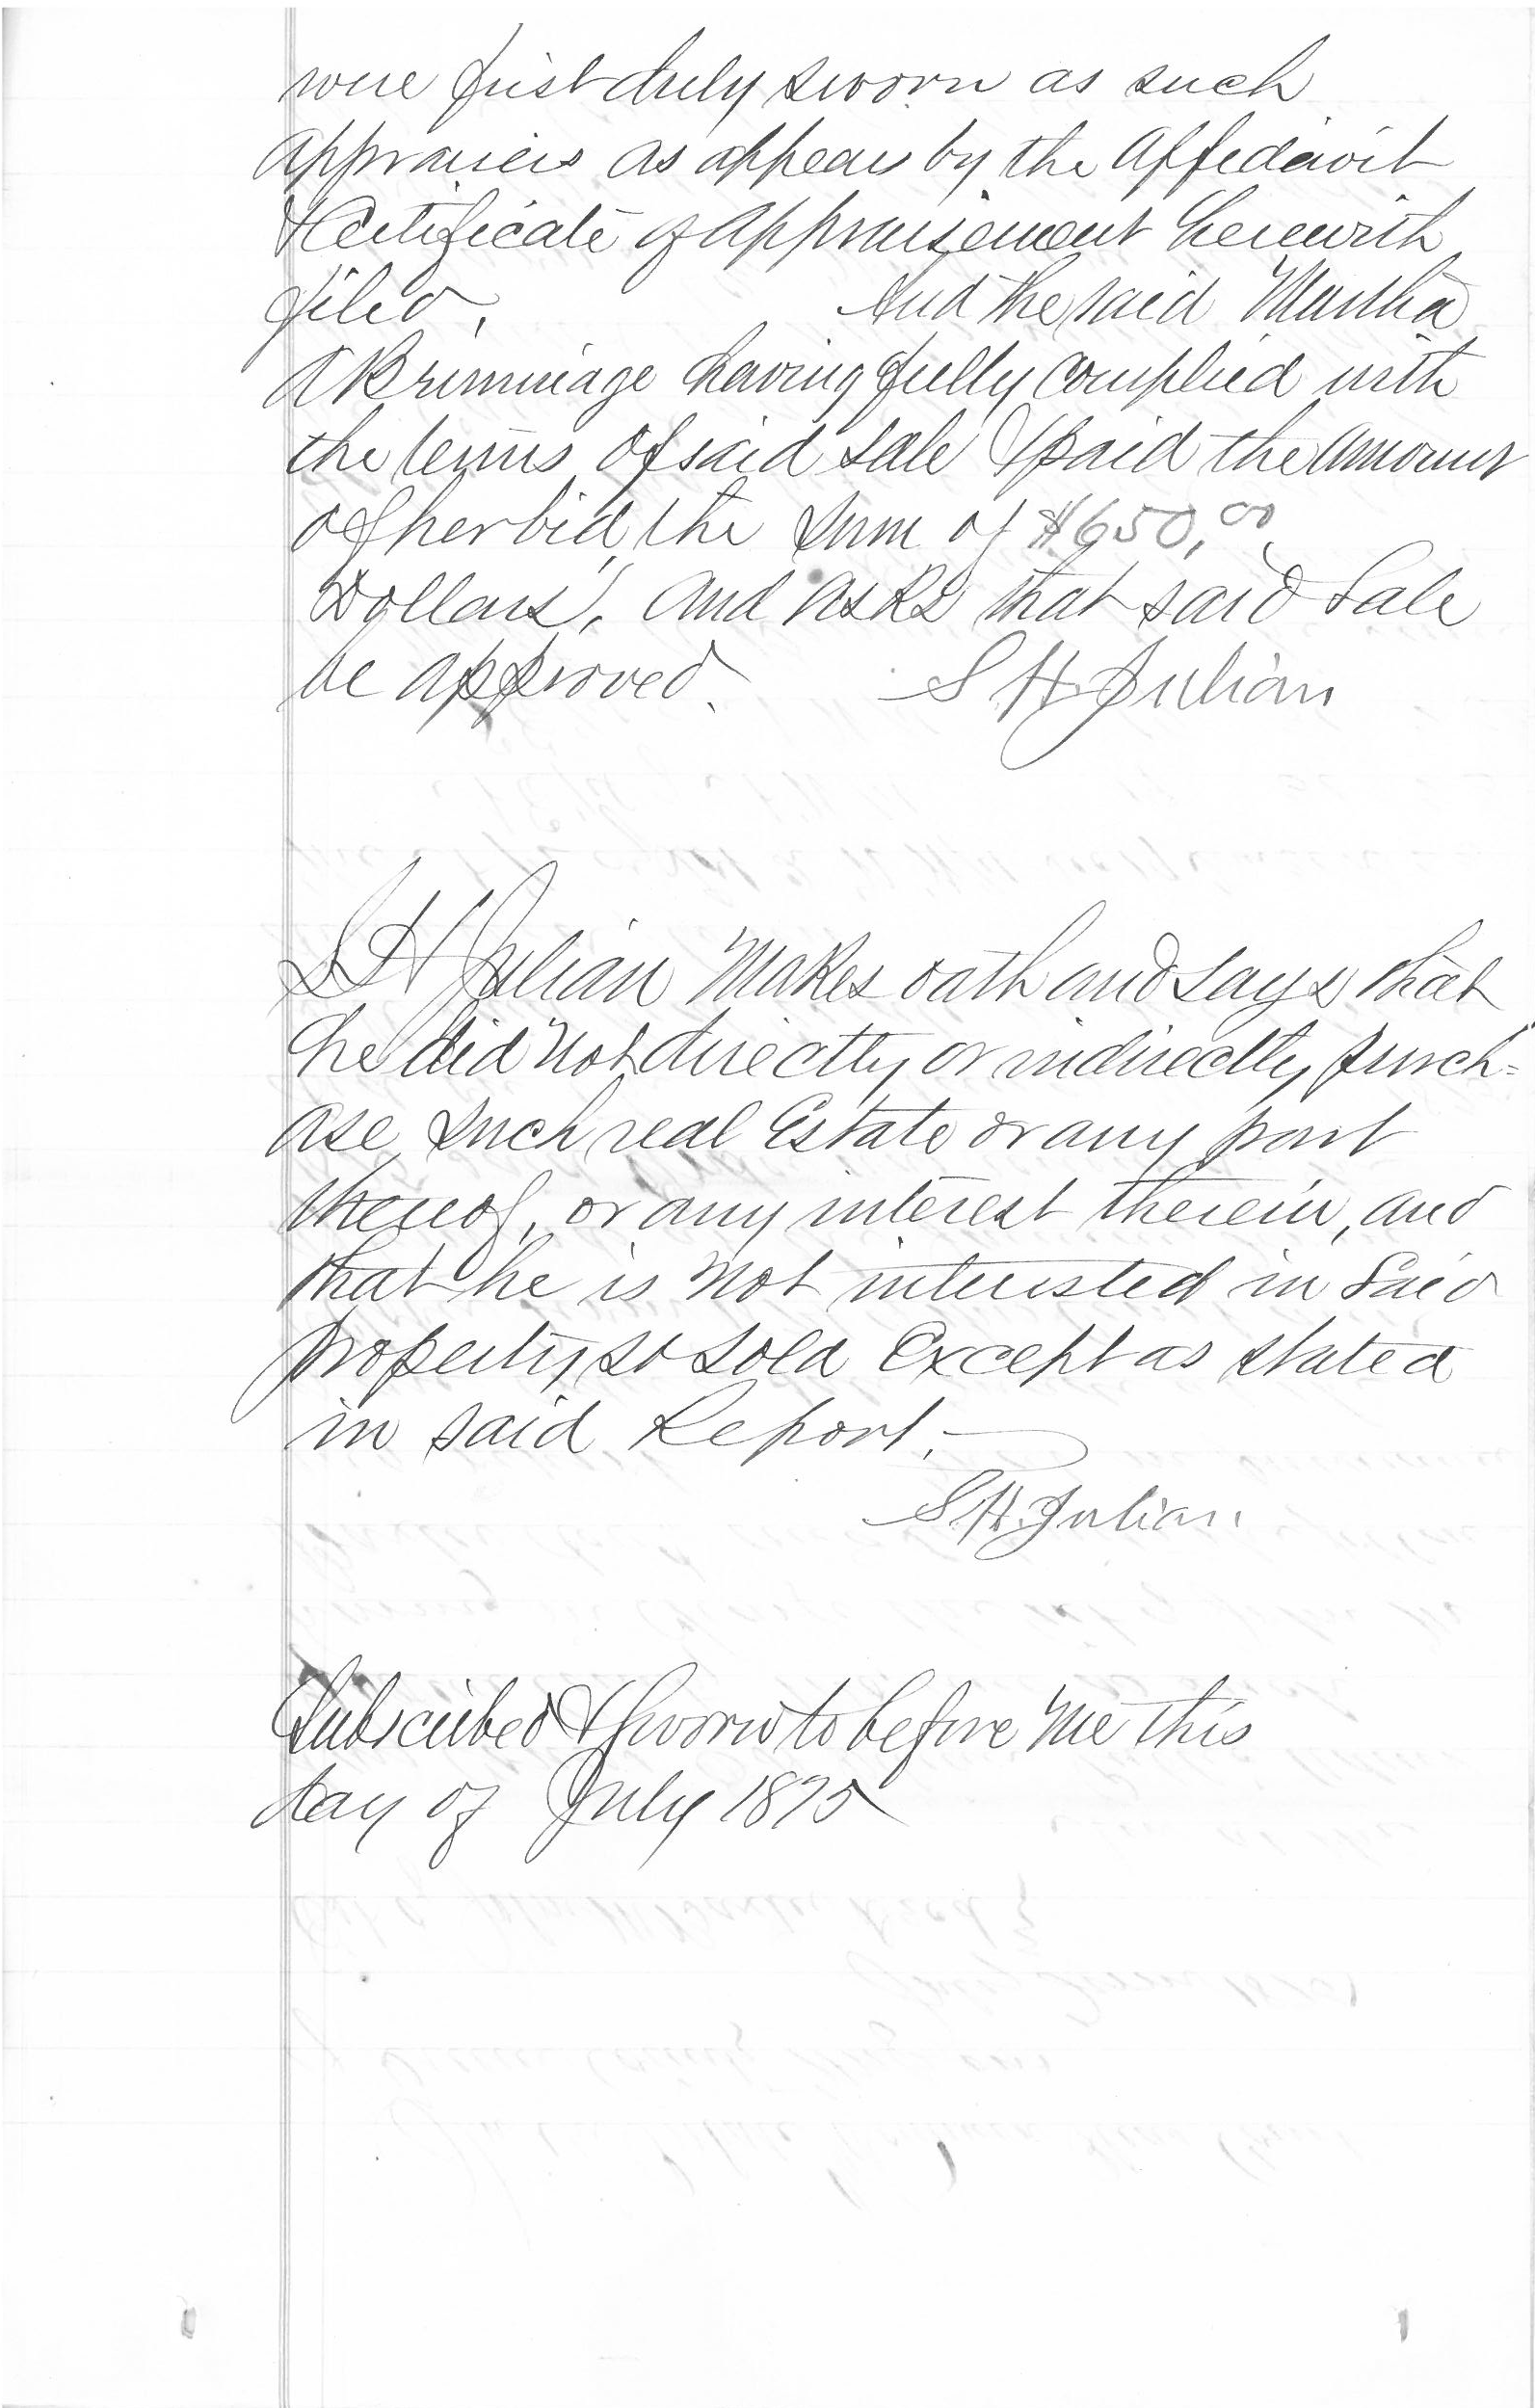 were first duly sworn as such
appraisers as appears by the affidavit
& Certificate of appraisement herewith
filed. And the said Martha
A Brummage having fully complied with
the terms of said sale & paid the amount
of her bid, the sum of $650,00
Dollars, and asks that said Sale
be approved. S. H. Julian
S H Julian makes oath and says that
he did not directly or indirectly purch=
ase such real Estate or any part
thereof, or any interest therein, and
that he is not interested in said
property so sold Except as stated
in said Report.
S. H. Julian
Subscribed & sworn to before me this
day of July 1875